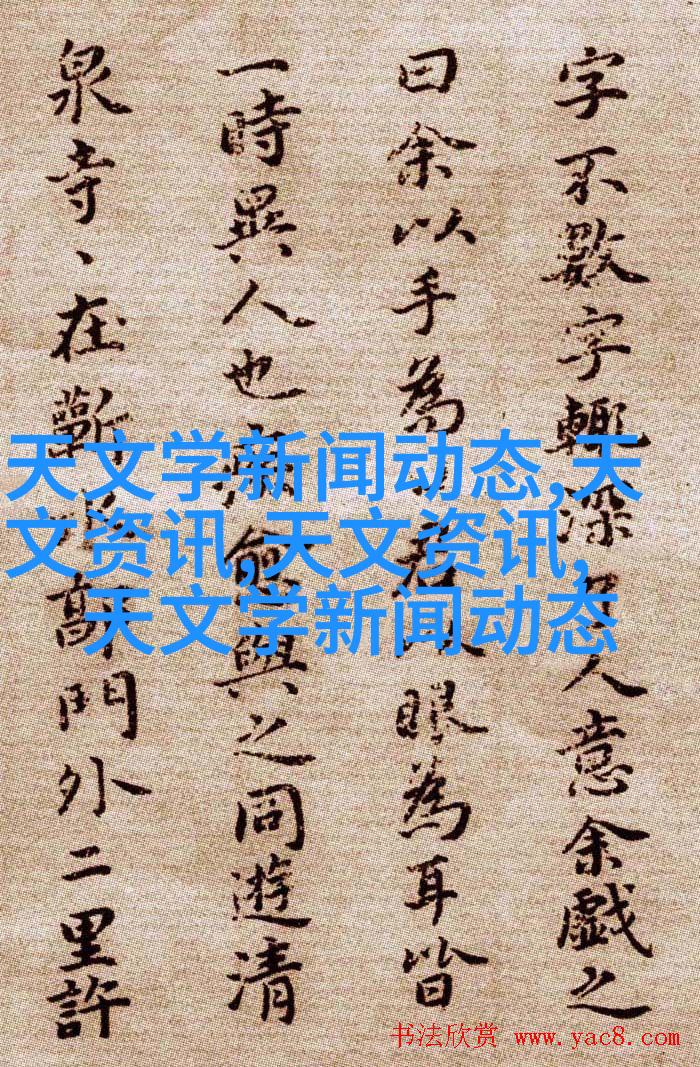 字不數字輒深人意余戲之
曰余以手為君眼為耳皆
一時異人也疾愈與之同遊清
泉寺、在蘄水郭門外二里許
天文学新闻动态,天
文资讯,天文资讯,
天文学新闻动态
书法欣赏 www.yac8.com